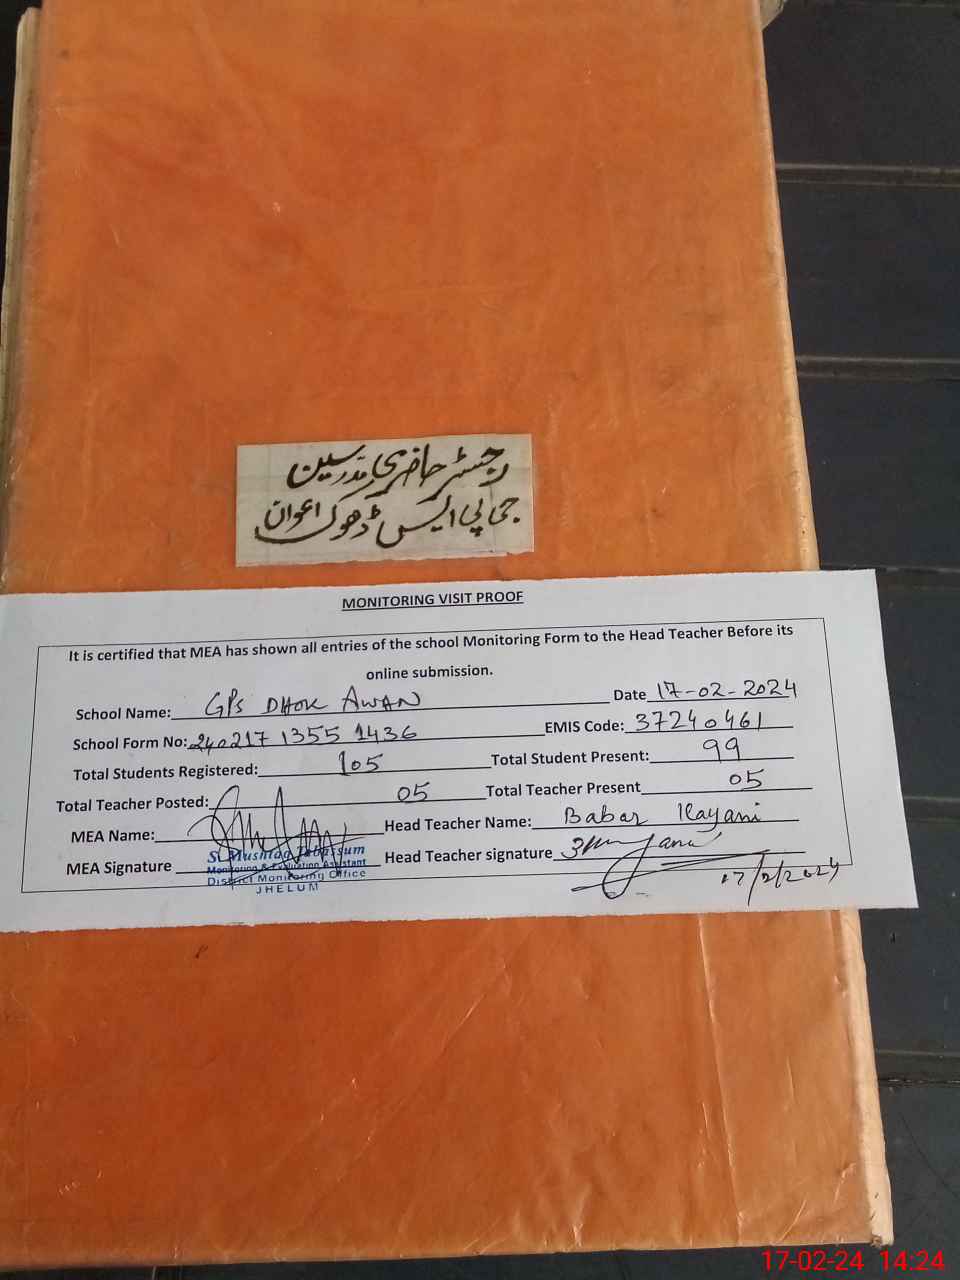 رجسٹر حاضری مدرسین
جی پی ایس ڈھوک اعوان
MONITORING VISIT PROOF
It is certified that MEA has shown all entries of the school Monitoring Form to the Head Teacher Before its
online submission.
School Name: GPS DHOK AWAN Date 17-02-2024
School Form No: 240217 1355 1436 EMIS Code: 37240461
Total Students Registered: 105 Total Student Present: 99
Total Teacher Posted: 05 Total Teacher Present 05
MEA Name: Head Teacher Name: Babar Kayani
MEA Signature Head Teacher signature
S. Mushtaq Tabassum
Monitoring & Evaluation Assistant
District Monitoring Office
JHELUM
17/2/2024
17-02-24 14:24